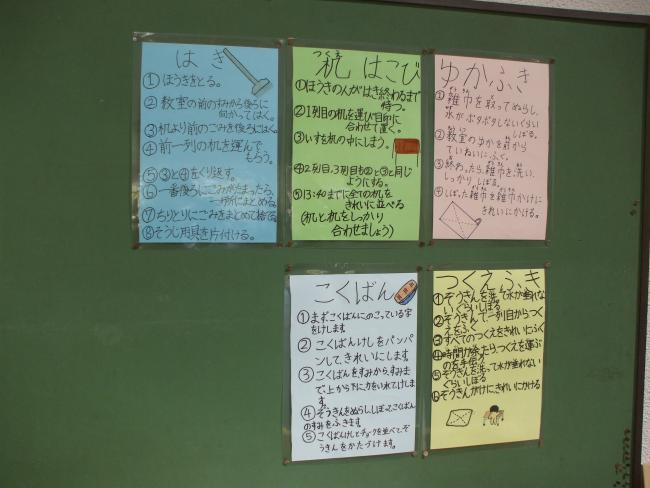 はき
①ほうきをとる。
②教室の前のすみから後ろに
向かってはく。
③机より前のごみを後ろにはく。
④前一列の机を運んで
もらう。
⑤③と④をくり返す。
⑥一番後ろにごみがたまったら、
一か所にまとめる。
⑦ちりとりにごみをまとめて捨てる。
⑧そうじ用具を片付ける。
つくえ
机はこび
①ほうきの人がはき終わるまで
待つ。
②1列目の机を運び目印に
合わせて置く。
③いすを机の中にしまう。
④2列目、3列目も②と③と同じ
ようにする。
⑤13:40までに全ての机を
きれいに並べる
(机と机をしっかり
合わせましょう)
ゆかふき
①雑巾を取ってぬらし、
水がポタポタしないくらい
しぼる。
②教室のゆかを前から
ていねいにふく。
③終わったら、雑巾を洗い、
しっかりしぼる。
しぼった雑巾を雑巾かけに
きれいにかける。
こくばん
①まずこくばんにのこっている字
をけします
②こくばんけしをパンパン
して、きれいにします
③こくばんをすみから、すみま
で、上から下に力を入れてけしま
す
④ぞうきんをぬらし、しぼって、こくばん
のすみをふきます
⑤こくばんけしとチョークを並べて、ぞ
うきんをかたづけます。
つくえふき
①ぞうきんを洗って水が垂れな
いぐらいしぼる
②ぞうきんで一列目からつく
えをふく
③すべてのつくえをきれいにふく
④時間が余ったら、つくえを運ぶ
のを手伝う
⑤ぞうきんを洗って水が垂れない
ぐらいしぼる
⑥ぞうきんがけに、きれいにかける